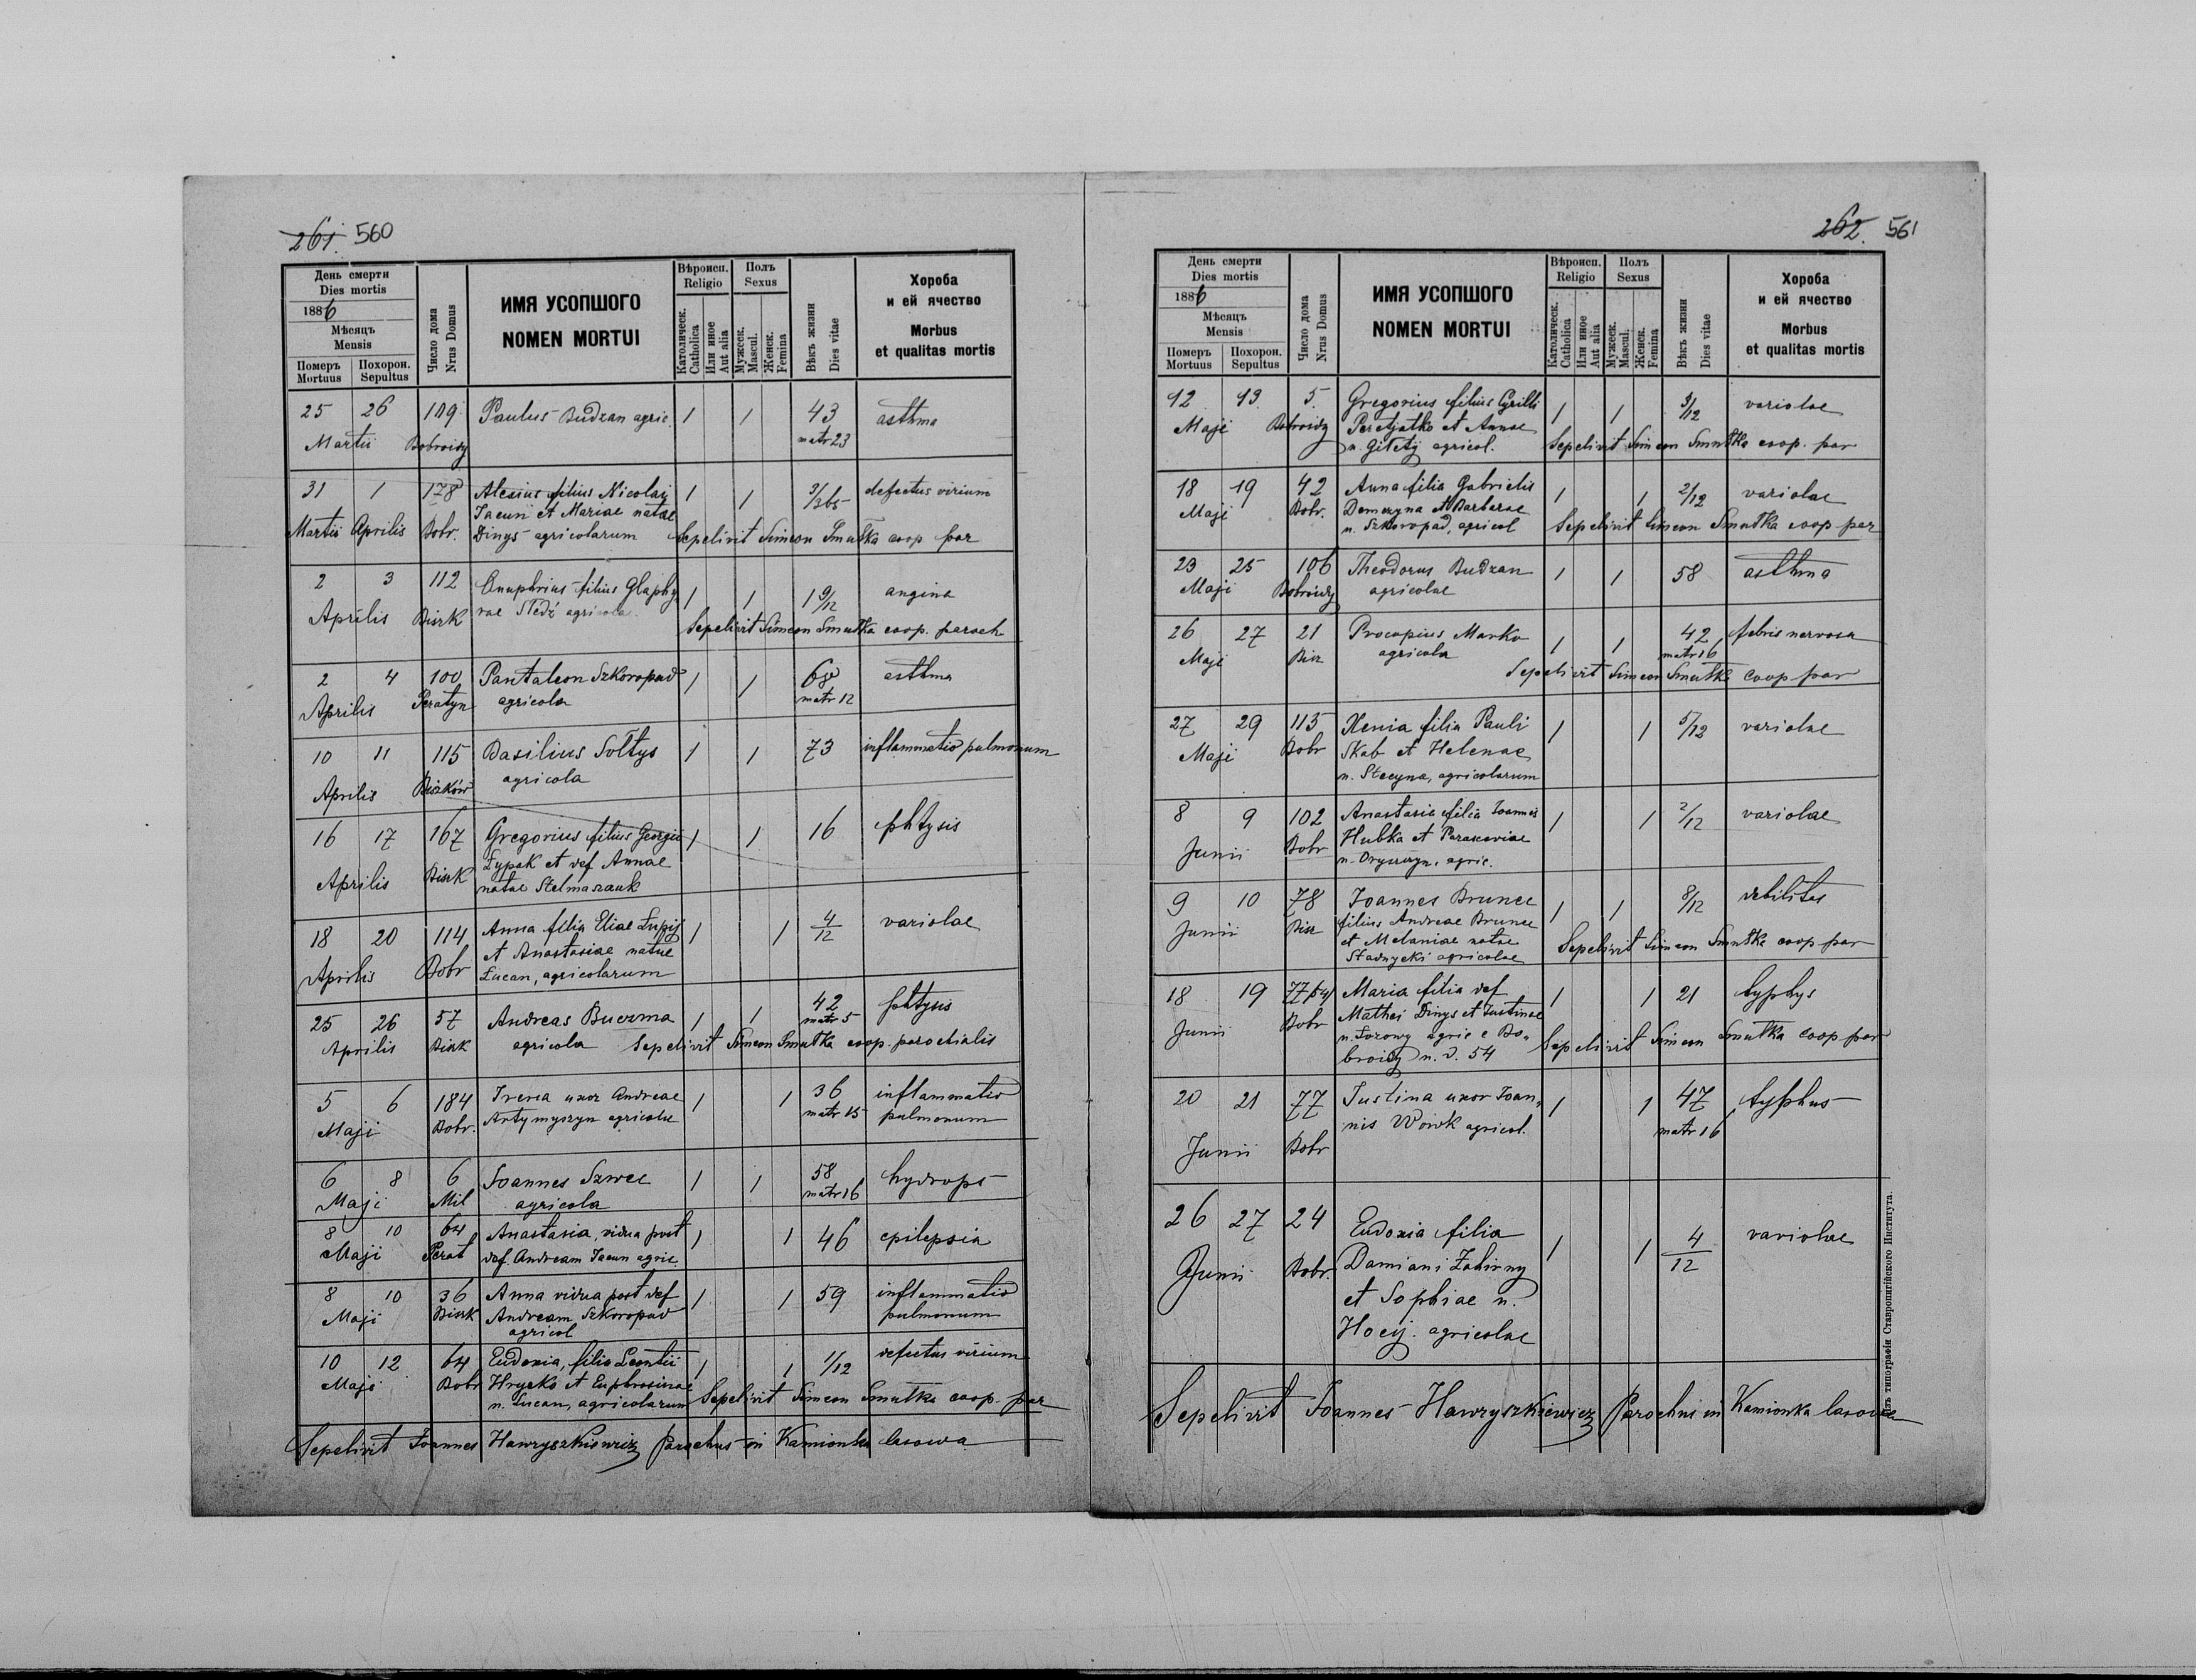 261. 560
День смерти
Dies mortis
1886
Мѣсяцъ
Mensis
Померъ
Mortuus
Похорон.
Sepultus
Число дома
Nrus Domus
ИМЯ УСОПШОГО
NOMEN MORTUI
Вѣроисп.
Religio
Католическ.
Catholica
Или иное
Aut alia
Полъ
Sexus
Мужеск.
Mascul.
Женск.
Femina
Вѣкъ жизни
Dies vitae
Хороба
и ей ячество
Morbus
et qualitas mortis
25 26 109 Paulus Budzan agric. 1 1 43 asthma
Martii Bobroidy matr 23
31 1 178 Alexius filius Nicolaij 1 1 3/365 defectus virium
Jacun et Mariae natae
Martii Aprilis Bobr. Dinys agricolarum Sepelivit Simeon Smutka coop par
2 3 112 Onuphrius filius Glaphy 1 1 1 9/12 angina
Aprilis Biszk rae Sledź agricola
Sepelivit Simeon Smutka coop. paroch
2 4 100 Pantaleon Szkoropad 1 1 68 asthma
Aprilis Peratyn agricola matr 12
10 11 115 Basilius Sołtys 1 1 73 inflammatio pulmonum
Aprilis Biszków agricola
16 17 167 Gregorius filius Georgii 1 1 16 phtysis
Łypak et def Annae
Aprilis Biszk natae Stelmaszuk
18 20 114 Anna filia Eliae Łupij 1 1 4/12 variolae
et Anastasiae natae
Aprilis Bobr Lucan, agricolarum
25 26 57 Andreas Buczma 1 1 42 phtysis
matr 5
Aprilis Biszk agricola Sepelivit Simeon Smutka coop. parochialis
5 6 184 Irena uxor Andreae 1 1 36 inflammatio
Maji Bobr. Artymyszyn agricolae matr 15 pulmonum
6 8 6 Joannes Szwec 1 1 58 hydrops
Maji Mil agricola matr 16
8 10 64 Anastasia, vidua post 1 1 46 epilepsia
Maji Perat def Andream Jacun agric.
8 10 36 Anna vidua post def 1 1 59 inflammatio
Maji Biszk Andream Szkoropad pulmonum
agricol
10 12 64 Eudoxia, filia Leontii 1 1 1/12 defectus virium
Maji Bobr Hrycko et Euphrosinae
n. Lucan, agricolarum Sepelivit Simeon Smutka coop. par
Sepelivit Joannes Hawryszkiewicz Parochus in Kamionka lasowa
262. 561
День смерти
Dies mortis
1886
Мѣсяцъ
Mensis
Померъ
Mortuus
Похорон.
Sepultus
Число дома
Nrus Domus
ИМЯ УСОПШОГО
NOMEN MORTUI
Вѣроисп.
Religio
Католическ.
Catholica
Или иное
Aut alia
Полъ
Sexus
Мужеск.
Mascul.
Женск.
Femina
Вѣкъ жизни
Dies vitae
Хороба
и ей ячество
Morbus
et qualitas mortis
12 13 5. Gregorius filius Cyrilli 1 1 3/12 variolae
Maji Bobroidy Peretjatko et Annae
n. Giłetij agricol. Sepelivit Simeon Smutka coop. par
18 19 42 Anna filia Gabrielis 1 1 2/12 variolae
Maji Bobr. Demczyna et Barbarae
n. Szkoropad, agricol Sepelivit Simeon Smutka coop par
23 25 106 Theodorus Budzan 1 1 58 asthma
Maji Bobroidy agricolae
26 27 21 Procopius Marko 1 1 42 febris nervosa
Maji Bisz agricola matr 16
Sepelivit Simeon Smutka coop par
27 29 113 Xenia filia Pauli 1 1 5/12 variolae
Maji Bobr Skab et Helenae
n. Stecyna, agricolarum
8 9 102 Anastasia filia Joannis 1 1 2/12 variolae
Junii Bobr Hubka et Parasceviae
n. Oryszczyn, agric.
9 10 78 Joannes Brunec 1 1 8/12 debilitas
Junii Bisz filius Andreae Brunec
et Melaniae natae Sepelivit Simeon Smutka coop par
Stadnycki agricolae
18 19 77/54 Maria filia def 1 1 21 typhys
Junii Bobr Mathei Dinys et Justinae
n. Łozowy agric e Bo- Sepelivit Simeon Smutka coop par
broidy n. d. 54
20 21 77 Justina uxor Joan- 1 1 47 typhus
nis Wowk agricol. matr 16
Junii Bobr
26 27 24 Eudoxia filia 1 1 4/12 variolae
Junii Bobr. Damiani Zabirny
et Sophiae n.
Hocij. agricolae
Sepelivit Joannes Hawryszkiewicz Parochus in Kamionka lasowa
Изъ типографіи Ставропигійского Института.